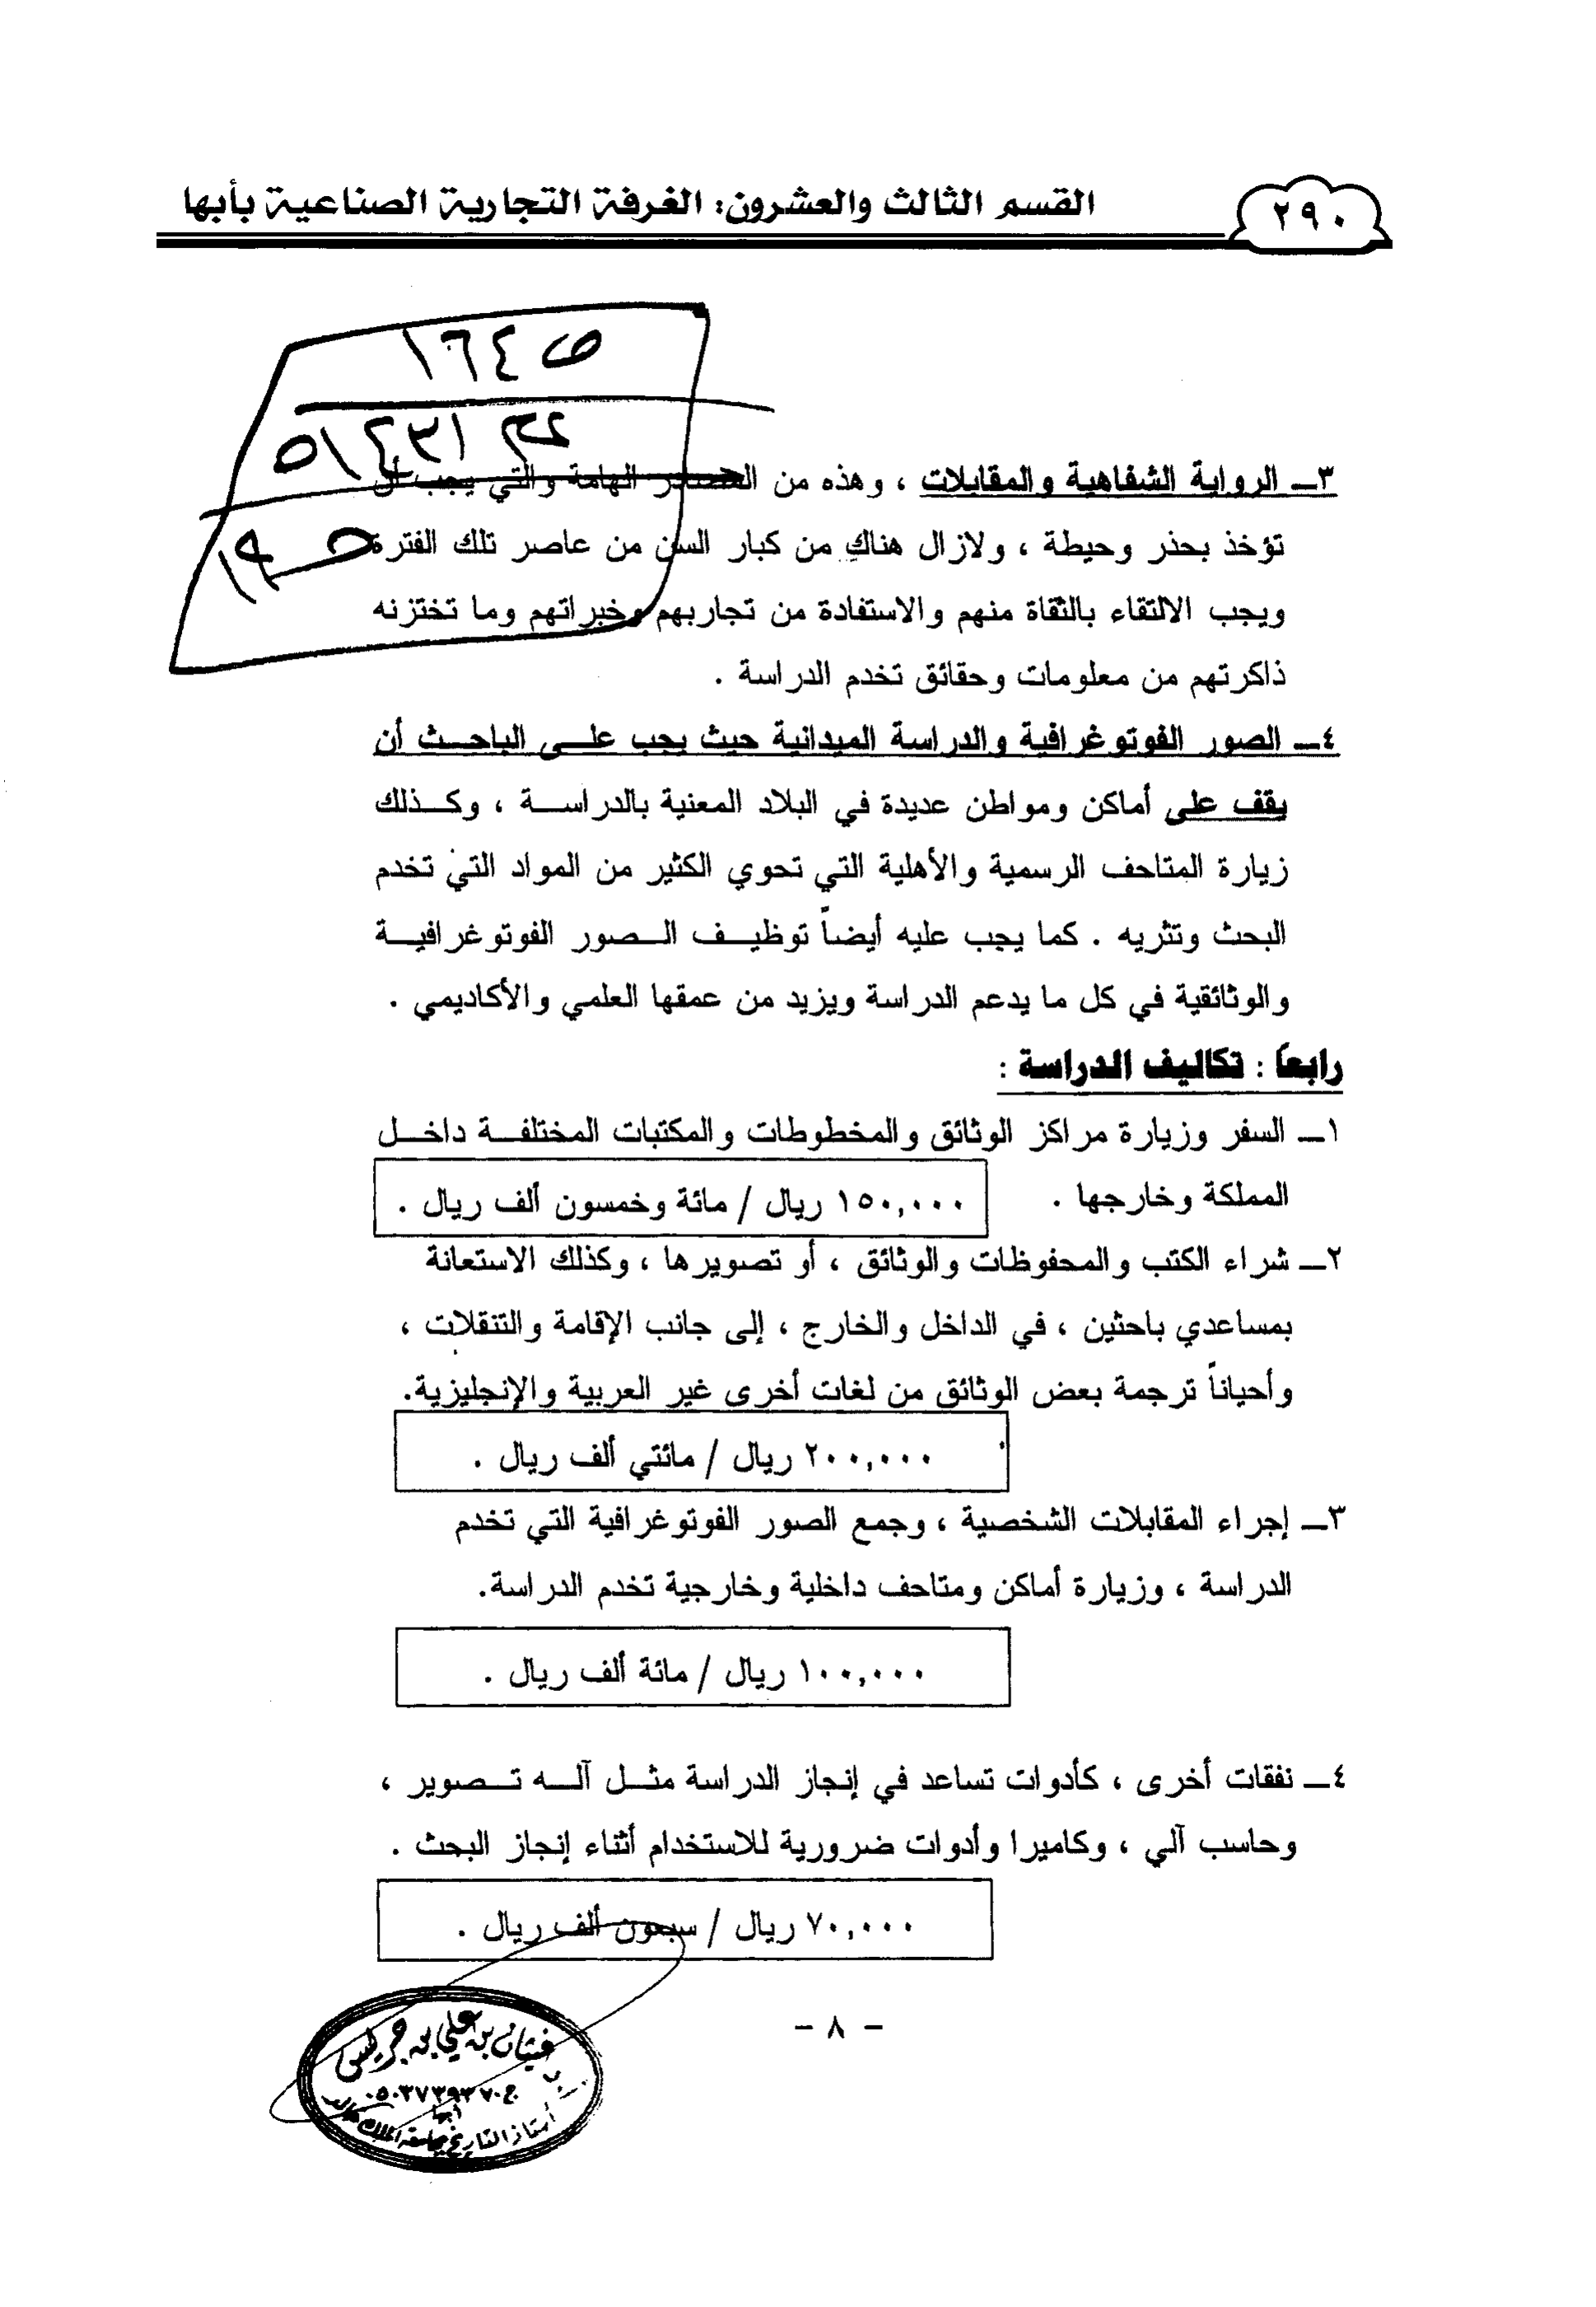 ٢٩٠
القسم الثالث والعشرون: الغرفة التجارية الصناعية بأبها
ص ١٦٤
٣ــ الرواية الشفاهية والمقابلات ، وهذه من المصادر الهامة والتي يجب أن
تؤخذ بحذر وحيطة ، ولازال هناك من كبار السن من عاصر تلك الفترة
ويجب الالتقاء بالثقاة منهم والاستفادة من تجاربهم وخبراتهم وما تختزنه
ذاكرتهم من معلومات وحقائق تخدم الدراسة .
٤ــ الصور الفوتوغرافية والدراسة الميدانية حيث يجب علــى الباحــث أن
يقف على أماكن ومواطن عديدة في البلاد المعنية بالدراســة ، وكــذلك
زيارة المتاحف الرسمية والأهلية التي تحوي الكثير من المواد التي تخدم
البحث وتثريه . كما يجب عليه أيضاً توظيــف الــصور الفوتوغرافيــة
والوثائقية في كل ما يدعم الدراسة ويزيد من عمقها العلمي والأكاديمي .
رابعاً : تكاليف الدراسة :
١ــ السفر وزيارة مراكز الوثائق والمخطوطات والمكتبات المختلفــة داخــل
المملكة وخارجها . ١٥٠,٠٠٠ ريال / مائة وخمسون ألف ريال .
٢ــ شراء الكتب والمحفوظات والوثائق ، أو تصويرها ، وكذلك الاستعانة
بمساعدي باحثين ، في الداخل والخارج ، إلى جانب الإقامة والتنقلات ،
وأحياناً ترجمة بعض الوثائق من لغات أخرى غير العربية والإنجليزية.
٢٠٠,٠٠٠ ريال / مائتي ألف ريال .
٣ــ إجراء المقابلات الشخصية ، وجمع الصور الفوتوغرافية التي تخدم
الدراسة ، وزيارة أماكن ومتاحف داخلية وخارجية تخدم الدراسة.
١٠٠,٠٠٠ ريال / مائة ألف ريال .
٤ــ نفقات أخرى ، كأدوات تساعد في إنجاز الدراسة مثــل آلــه تــصوير ،
وحاسب آلي ، وكاميرا وأدوات ضرورية للاستخدام أثناء إنجاز البحث .
٧٠,٠٠٠ ريال / سبعون ألف ريال .
- ٨ -
غيثان بن علي بن جريس
ج٠٥٠٣٧٣٩٣٧٠
أبها
أستاذ التاريخ بجامعة الملك خالد